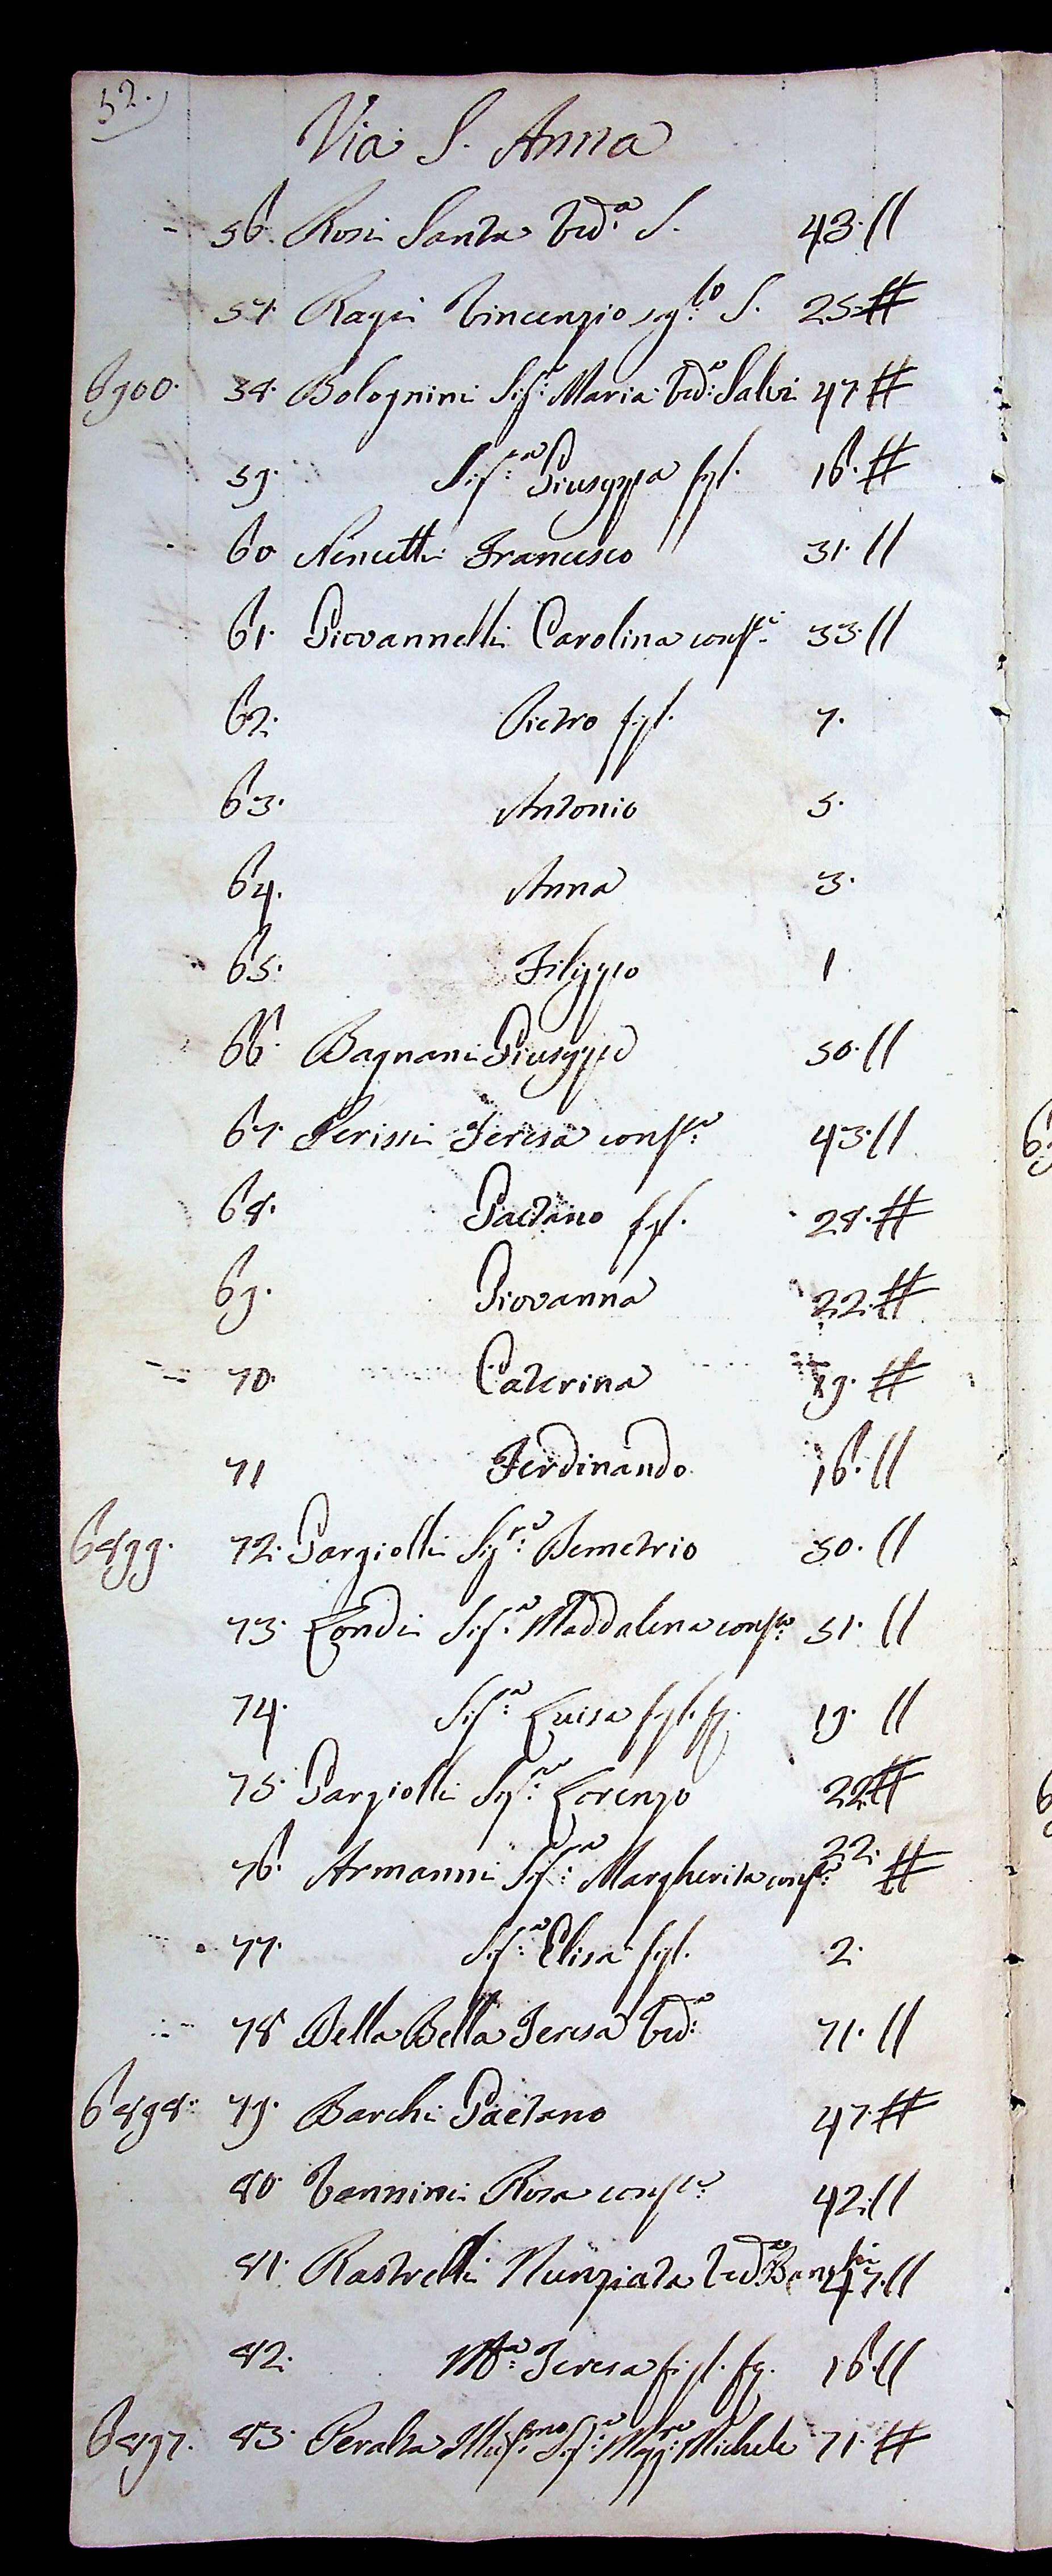 52.
Via S. Anna
56. Rosi Santa Ved.a S. 43. //
57. Ragii Vincenzio sg.lo S. 25 #
6900. 58. Bolognini Sig.ra Maria Ved.a Salvi 47 #
59. Sig.ra Giuseppa figl. 16. #
60 Nencetti Francesco 31. //
61. Giovannelli Carolina cons.te 33. //
62. Pietro figl. 7.
63. Antonio 5.
64. Anna 3.
65. Filippo 1
66. Bagnani Giuseppe 50. //
67. Perissi Teresa cons.te 43. //
68. Gaetano figl. 28. #
69. Giovanna 22. #
70. Caterina 19. #
71 Ferdinando 16. //
6899. 72. Gargiolli Sig.re Demetrio 50. //
73. Londi Sig.a Maddalena cons.te 51. //
74. Sig.a Luisa figl. fg. 19. //
75. Gargiolli Sig.re Lorenzo 22 #
76. Armanni Sig.ra Margherita cons.te 22. #
77. Sig.a Elisa figl. 2.
78 Della Bella Teresa Ved.a 71. //
6898. 79. Barchi Gaetano 47. #
80. Vannini Rosa cons.te 42. //
81. Rastrelli Nunziata Ved.a 47. //
82. M.a Teresa figl. fg. 16. //
6897. 83. Peralta Illus.mo Sig.e Magg.re Michele 71. #